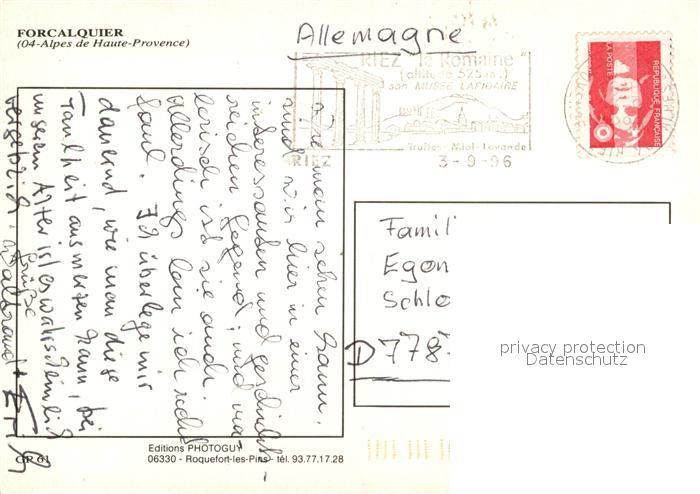 FORCALQUIER
(04-Alpes de Haute-Provence)
Allemagne
RIEZ "la Romaine"
(altitude 525 m.)
son MUSEE LAPIDAIRE
Truffes - Miel - Lavande
RIEZ
3-9-96
REPUBLIQUE FRANÇAISE
LA POSTE
man sehen kann,
sind wir hier in einer
interessanten und geschichts-
reichen Gegend, und ma-
lerisch ist sie auch.
Allerdings bin ich recht
faul. Ich überlege mir
dauernd, wie man diese
Faulheit ausmerzen kann, bei
unserm Alter ist es wahrscheinlich
vergeblich.
Grüße
Waltraud + Erich
Famil
Egon
Schlo
D 778
privacy protection
Datenschutz
GP 61
Editions PHOTOGUY
06330 - Roquefort-les-Pins - tél. 93.77.17.28